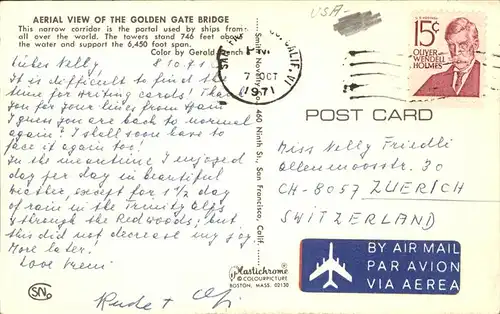 AERIAL VIEW OF THE GOLDEN GATE BRIDGE
This narrow corridor is the portal used by ships from
all over the world. The towers stand 746 feet above
the water and support the 6,450 foot span.
Color by Gerald French
8.10.71
Liebes Nelly,
It is difficult to find the
time for writing cards! Thank
you for your lines from
I guess you are back to normal
again? I shall soon have to
face it again too!
In the meantime I enjoyed
day per day in beautiful
weather, except for 1 1/2 day
of rain in the Trinity Alps
& through the Redwoods, but
this did not decrease my joy.
More later!
Love Vreni
SN
Smith Novelty Co. 460 Ninth St., San Francisco, Calif.
Plastichrome
® COLOURPICTURE
BOSTON, MASS. 02130
USA
SAN CALIF
PM
7 OCT
1971
15¢
U.S. POSTAGE
OLIVER
WENDELL
HOLMES
POST CARD
Miss Nelly Friedli
Allenmoosstr. 30
CH-8057 ZUERICH
SWITZERLAND
BY AIR MAIL
PAR AVION
VIA AEREA